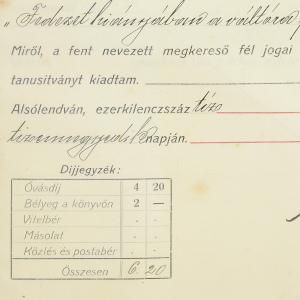 „Fedezet hiányjában a váltóra
Miről, a fent nevezett megkereső fél jogai
tanusitványt kiadtam.
Alsólendván, ezerkilenczszáz tíz
tizennegyedik napján.
Dijjegyzék:
Óvásdíj 4 20
Bélyeg a könyvön 2 —
Vitelbér . .
Másolat . .
Közlés és postabér . .
Összesen 6. 20